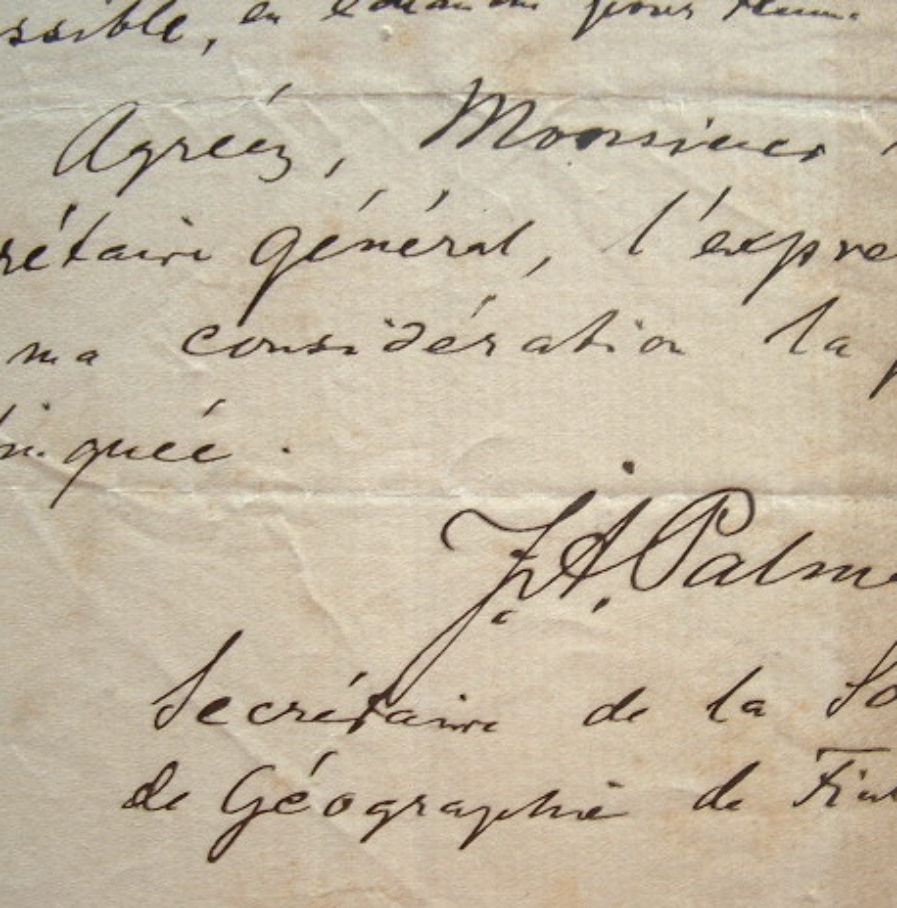 ssible, en
Agréez, Monsieur
rétaire général, l'expre
ma considération la
inguée.
J. A. Palme
Secrétaire de la So
de Géographie de Finl